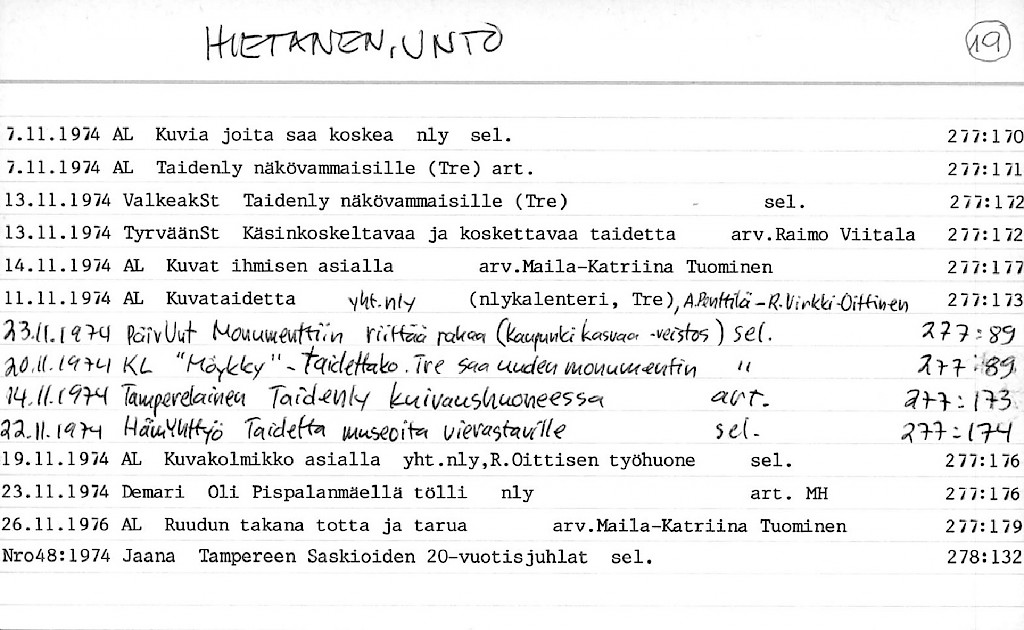 HIETANEN, UNTO 19
7.11.1974 AL Kuvia joita saa koskea nly sel. 277:170
7.11.1974 AL Taidenly näkövammaisille (Tre) art. 277:171
13.11.1974 ValkeakSt Taidenly näkövammaisille (Tre) - sel. 277:172
13.11.1974 TyrväänSt Käsinkoskeltavaa ja koskettavaa taidetta arv.Raimo Viitala 277:172
14.11.1974 AL Kuvat ihmisen asialla arv.Maila-Katriina Tuominen 277:177
11.11.1974 AL Kuvataidetta yht.nly (nlykalenteri, Tre), A.Penttilä-R.Virkki-Oittinen 277:173
23.11.1974 PäivUut Monumenttiin riittää rahaa (Kaupunki kasvaa -veistos) sel. 277:89
20.11.1974 KL "Möykky" - taidettako. Tre saa uuden monumentin " 277:89
14.11.1974 Tamperelainen Taidenly kuivaushuoneessa art. 277:173
22.11.1974 HämYhttyö Taidetta museoita vierastaville sel. 277:174
19.11.1974 AL Kuvakolmikko asialla yht.nly,R.Oittisen työhuone sel. 277:176
23.11.1974 Demari Oli Pispalanmäellä tölli nly art. MH 277:176
26.11.1976 AL Ruudun takana totta ja tarua arv.Maila-Katriina Tuominen 277:179
Nro48:1974 Jaana Tampereen Saskioiden 20-vuotisjuhlat sel. 278:132